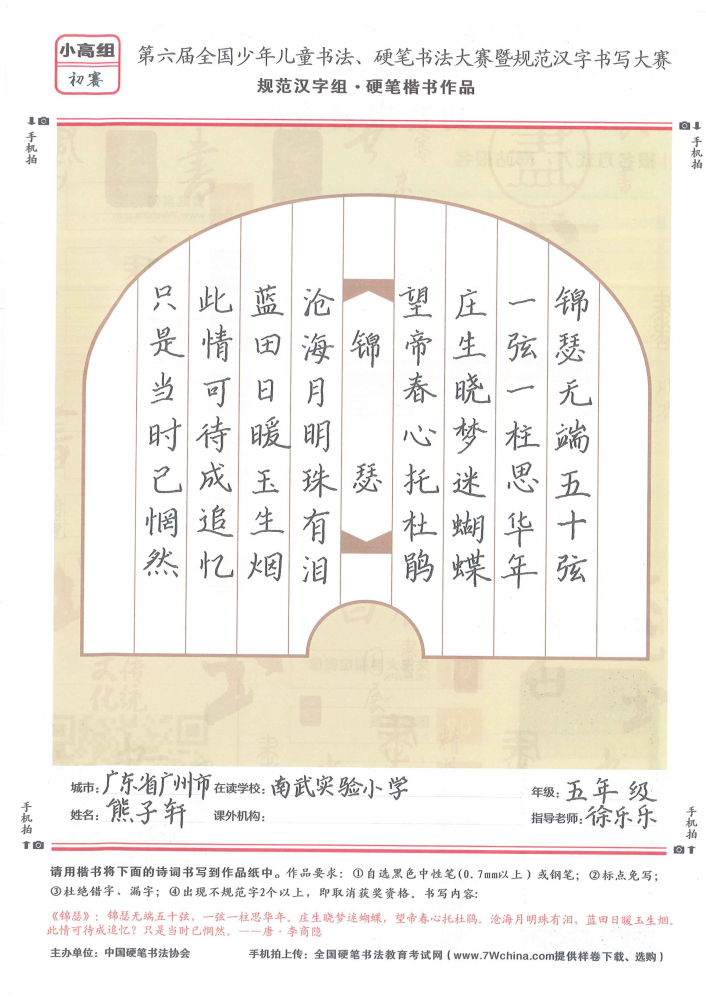 小高组
初赛
第六届全国少年儿童书法、硬笔书法大赛暨规范汉字书写大赛
规范汉字组·硬笔楷书作品
手机拍
手机拍
锦瑟无端五十弦
一弦一柱思华年
庄生晓梦迷蝴蝶
望帝春心托杜鹃
锦瑟
沧海月明珠有泪
蓝田日暖玉生烟
此情可待成追忆
只是当时已惘然
城市：广东省广州市 在读学校：南武实验小学 年级：五年级
姓名：熊子轩 课外机构： 指导老师：徐乐乐
手机拍
手机拍
请用楷书将下面的诗词书写到作品纸中。作品要求：①自选黑色中性笔(0.7mm以上)或钢笔；②标点免写；
③杜绝错字、漏字；④出现不规范字2个以上，即取消获奖资格。书写内容：
《锦瑟》：锦瑟无端五十弦，一弦一柱思华年。庄生晓梦迷蝴蝶，望帝春心托杜鹃。沧海月明珠有泪，蓝田日暖玉生烟。
此情可待成追忆？只是当时已惘然。——唐·李商隐
主办单位：中国硬笔书法协会 手机拍上传：全国硬笔书法教育考试网（www.7Wchina.com提供样卷下载、选购）